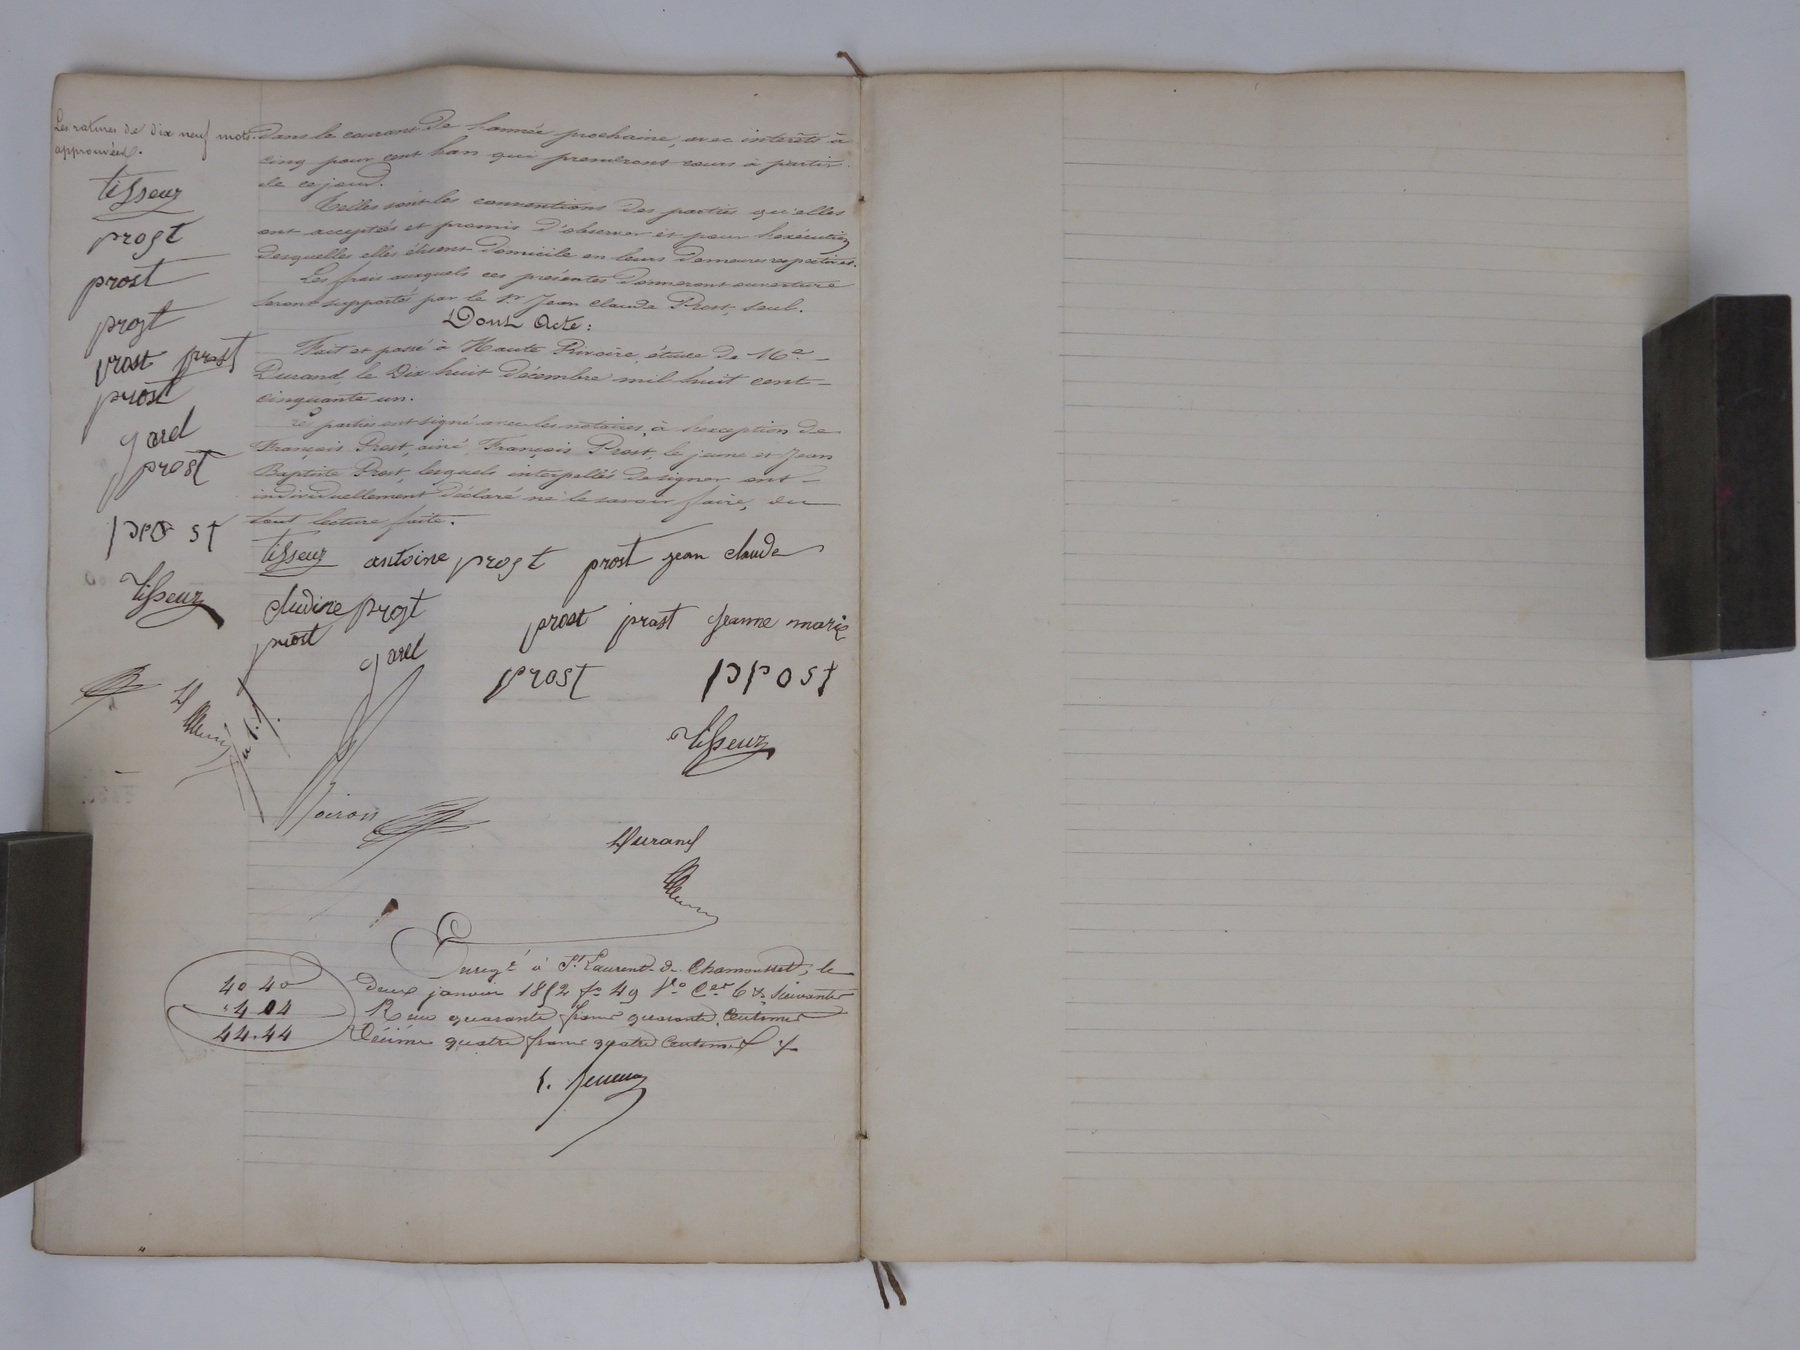 Les ratures de dix neuf mots
approuvées.
tisseur
prost
prost
prost
prost prost
prost
garel
prost
prost
tisseur
dans le courant de l'année prochaine, avec intérêts à
cinq pour cent l'an qui prendront cours à partir
de ce jour.
Telles sont les conventions des parties qu'elles
ont acceptées et promis d'observer et pour l'exécution
desquelles elles élisent domicile en leurs demeures respectives.
Les frais auxquels ces présentes donneront ouverture
seront supportés par le Sr Jean Claude Prost, seul.
Dont Acte:
Fait et passé à Haute Rivoire, étude de Me
Durand, le Dix huit décembre mil huit cent
cinquante un.
Les parties ont signé avec les notaires, à l'exception de
François Prost, ainé, François Prost, le jeune et Jean
Baptiste Prost, lesquels interpellés de signer ont
individuellement déclaré ne le savoir faire, du
tout lecture faite.
tisseur antoine prost prost jean claude
cludine prost prost prost jeanne marie
prost garel prost ppost
tisseur
Durand
Enregé à St Laurent de Chamousset, le
deux janvier 1852 fo 49 Vo Cer 6 & suivantes
Reçu quarante francs quarante Centimes
Décime quatre francs quatre Centimes
40.40
4 04
44.44